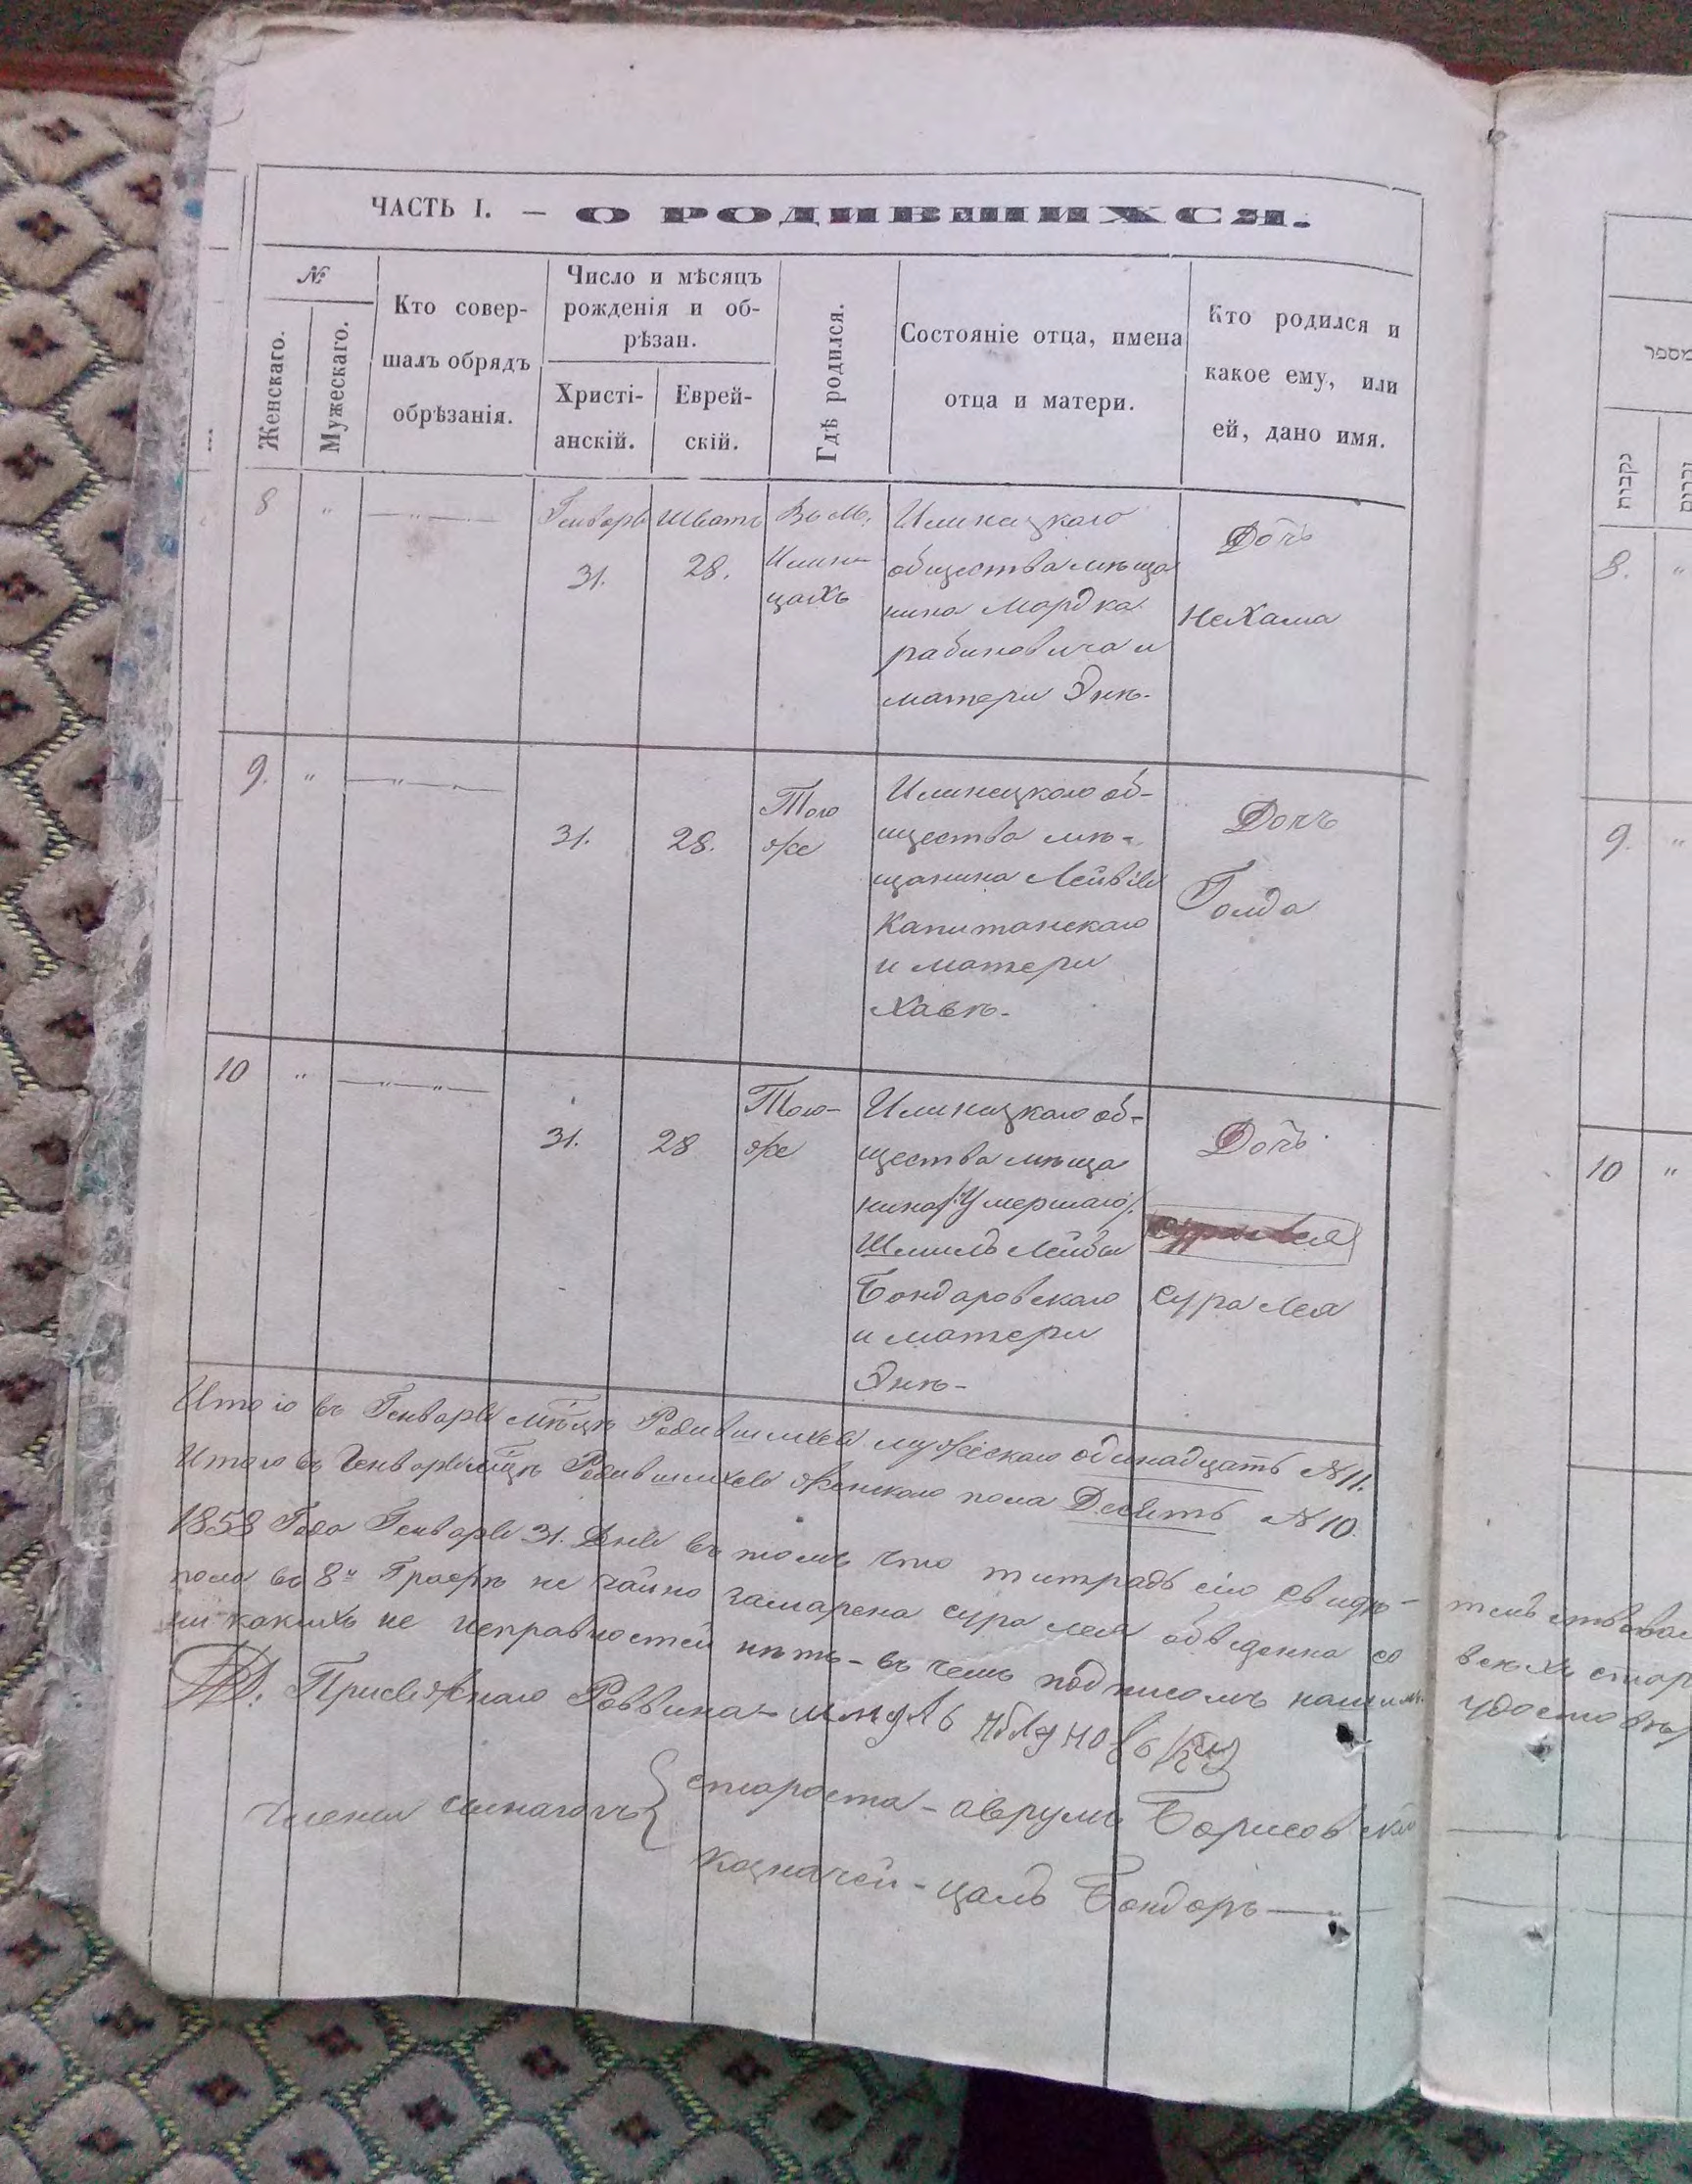 ЧАСТЬ I. — О РОДИВШИХСЯ.
№
Женскаго.
Мужескаго.
Кто совер-
шалъ обрядъ
обрѣзанія.
Число и мѣсяцъ
рожденія и об-
рѣзан.
Христі-
анскій.
Еврей-
скій.
Гдѣ родился.
Состояніе отца, имена
отца и матери.
Кто родился и
какое ему, или
ей, дано имя.
מספר
נקבות
זכרים
8 " —"—
Генваръ
31.
Шватъ
28.
Въ м.
Илин-
цахъ
Илинецкаго
общества мѣща
нина Мордка
рабиновича и
матери Энѣ.
Дочь
Нехама
8. "
9. " —"—
31.
28.
Того
же
Илинецкого об-
щества мѣ-
щанина Лейвія
Капитанскаго
и матери
Хавѣ-
Дочь
Голда
9. "
10 " —"—"—
31.
28
Того-
же
Илинецкаго об-
щества мѣща
нина /:Умершаго/:
Шмилъ Лейбы
Бондаровскаго
и матери
Энѣ-
Дочь
Сура Лея
Сура Лея
10 "
Итого въ Генваре мѣсяцѣ Родившихся мужескаго одинадцать №11.
Итого въ Генваре мцѣ Родившихся женского пола Десять №10.
1858 Года Генваря 31. Дня въ томъ что титрадь сію свидѣ- тельствова
пола въ 8й Графѣ не чайно замарена сура лея объведена со всехъ стор
ни какихъ не исправностей нѣтъ - въ чемъ подписомъ нашимъ удостовѣр
Присяжнаго Раввина-
Члены синагогъ { староста - аврумъ Борисовскій
казначей - цаль Бондаръ —